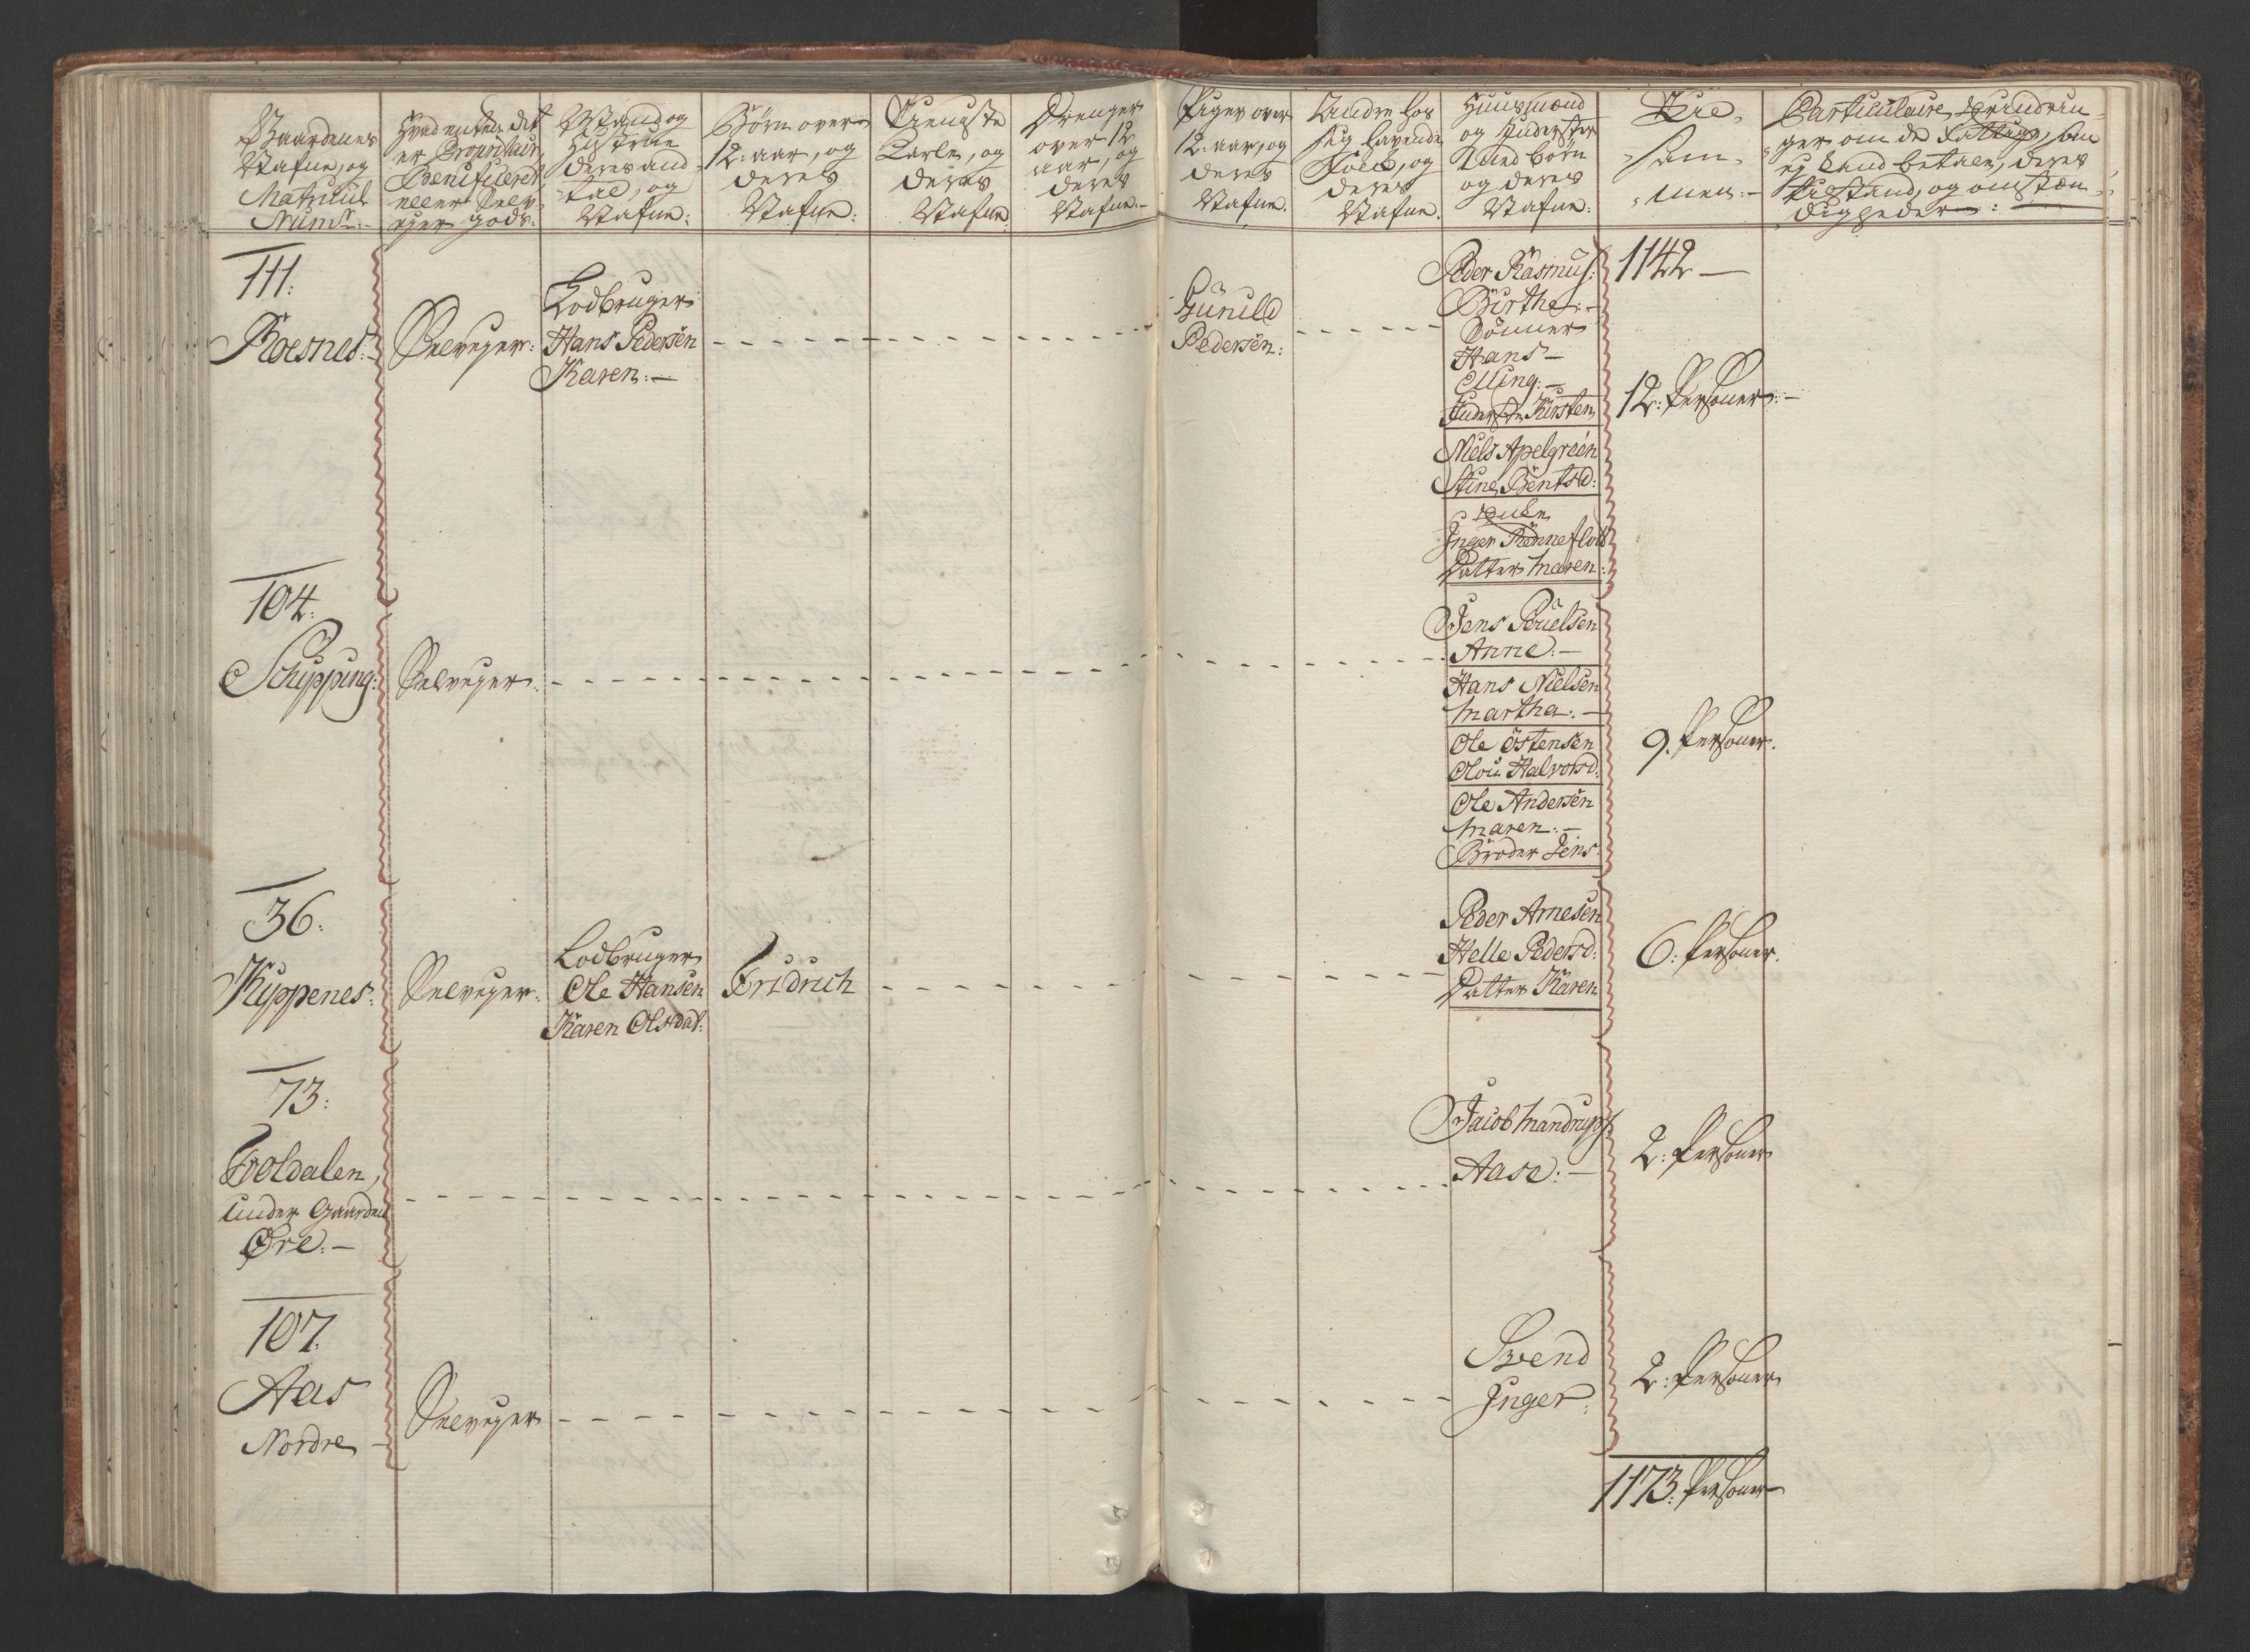 Gaardenes
Nafne, og
Matricul
Numr:
Hvad enten det
er Proprietair
Beneficeret
eller Selv
eyer gods:
Mand og
Hustrue
deres and
tal, og
Nafne:
Börn over
12: aar, og
deres
Nafne:
Tieneste
Karle, og
deres
Nafne
Drenger
over 12
aar, og
deres
Nafne:
Piger over
12: aar, og
deres
Nafne.
Andre hos
sig havende
Folk, og
deres
Nafne.
Huusmænd
og Inderster
med börn
og deres
Nafne:
Tie
sam
men:
Particulaire Erindrin
ger om de Fattige, som
ej kand betale, deres
Tilstand, og omstæn
digheder:
111:
Röesnes:
Selveyer:
Lodbruger
Hans Pedersön
Karen:
Gunild
Pedersön:
Peder Rasmus:
Birthe:
Sönner
Hans
Elling:
Inderste Kirsten
Niels Apelgreen
Stine Bentsd:
Enke
Inger
Datter Maren:
1142
12: Personer:
104:
Schipping:
Selveyer:
Jens Poulsen
Anne:
Hans Nielsen
Martha:
Ole Östensen
Olou Halvorsd:
Ole Andersön
Maren:
Broder Jens
9. Personer.
36:
Kippenes:
Selveyer:
Lodbruger
Ole Hansen
Karen Olsdat:
Fridrich
Peder Arnesen
Helle Pedersd:
Datter Karen
6: Personer.
73:
Troldalen,
under Gaarden
Øre:
Jacob Mandrups
Aase:
2: Personer
107.
Aas
Nordre
Selveyer
Svend
Inger:
2: Personer
1173: Personer